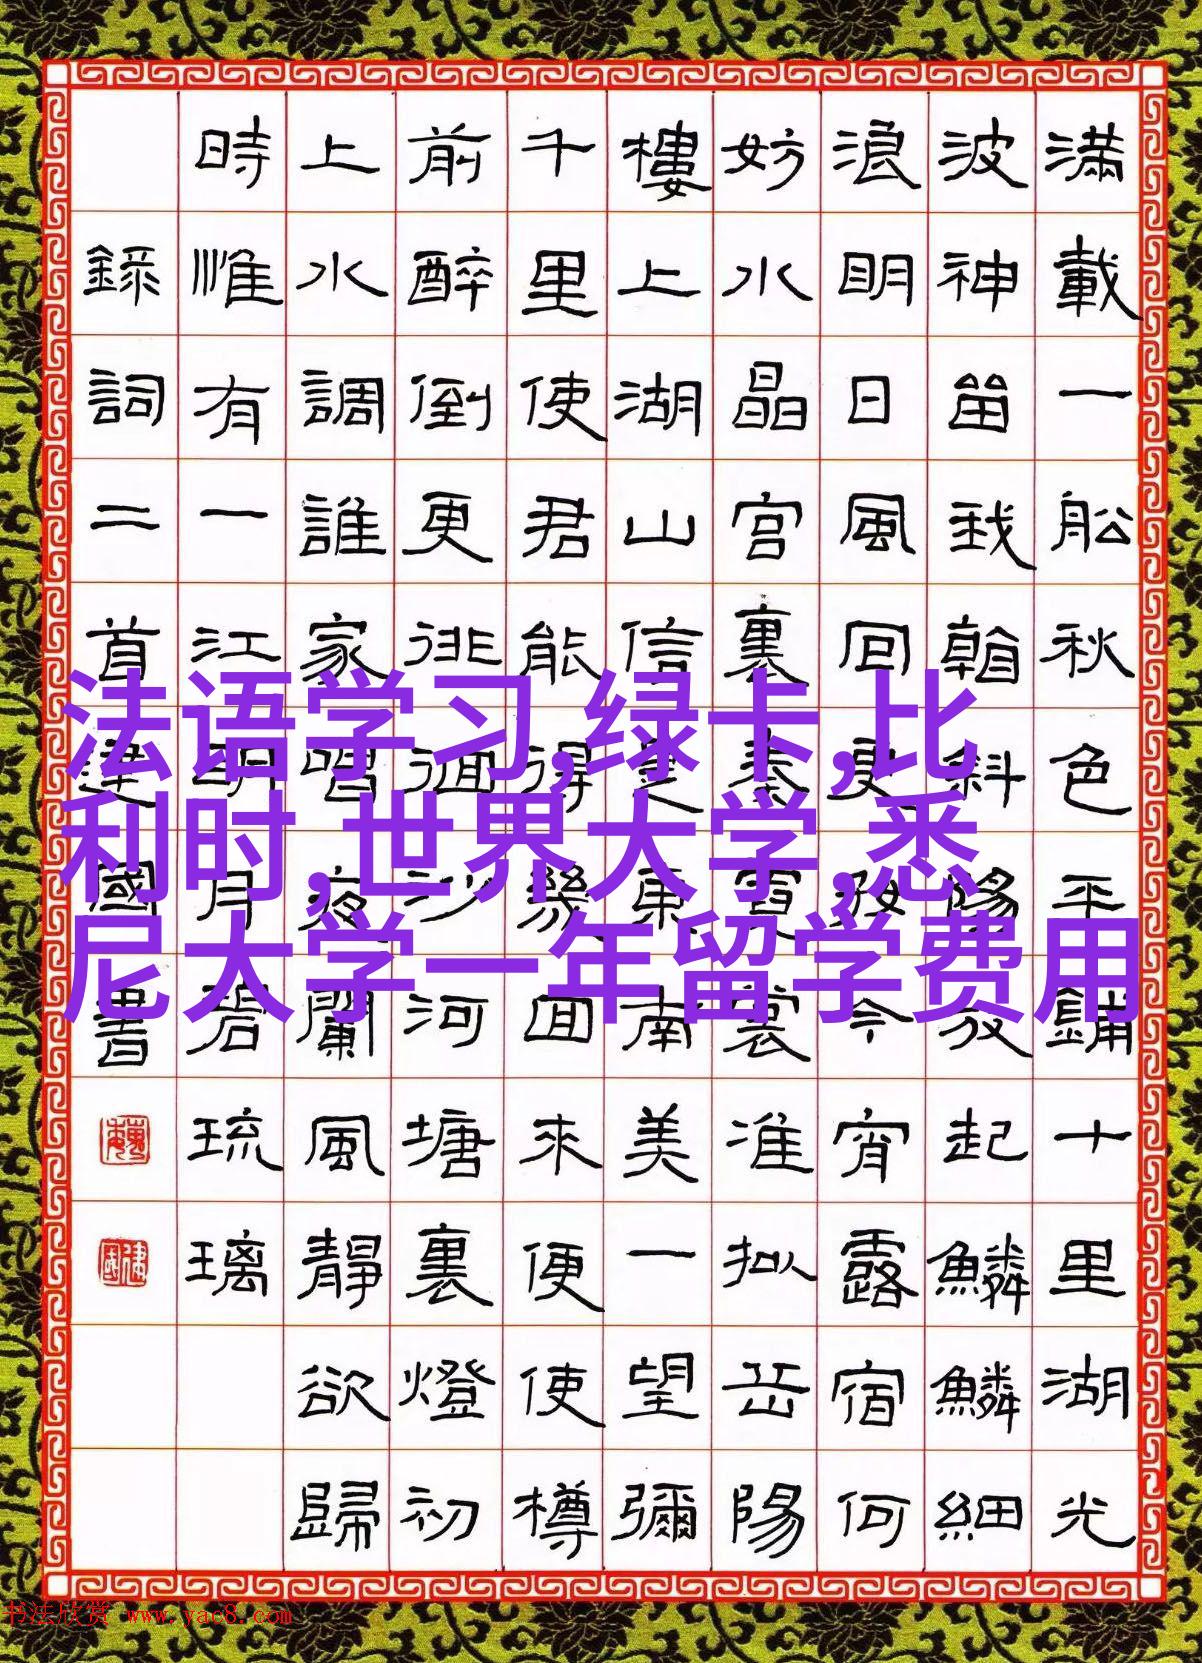 滿載一船秋色平鋪十里湖光
波神留我看斜陽放起鱗鱗細
浪明日風回更好今宵露宿何
妨水晶宮裏奏霓裳准拟岳陽
樓上湖山信是東南美一望彌
千里使君能得幾回來便使樽
前醉倒更徘徊沙河塘裏燈初
上水調誰家唱夜闌風靜欲歸
時惟有一江明月碧琉璃
錄詞二首建國書
法语学习,绿卡,比
利时,世界大学,悉
尼大学一年留学费用
书法欣赏 www.yac8.com